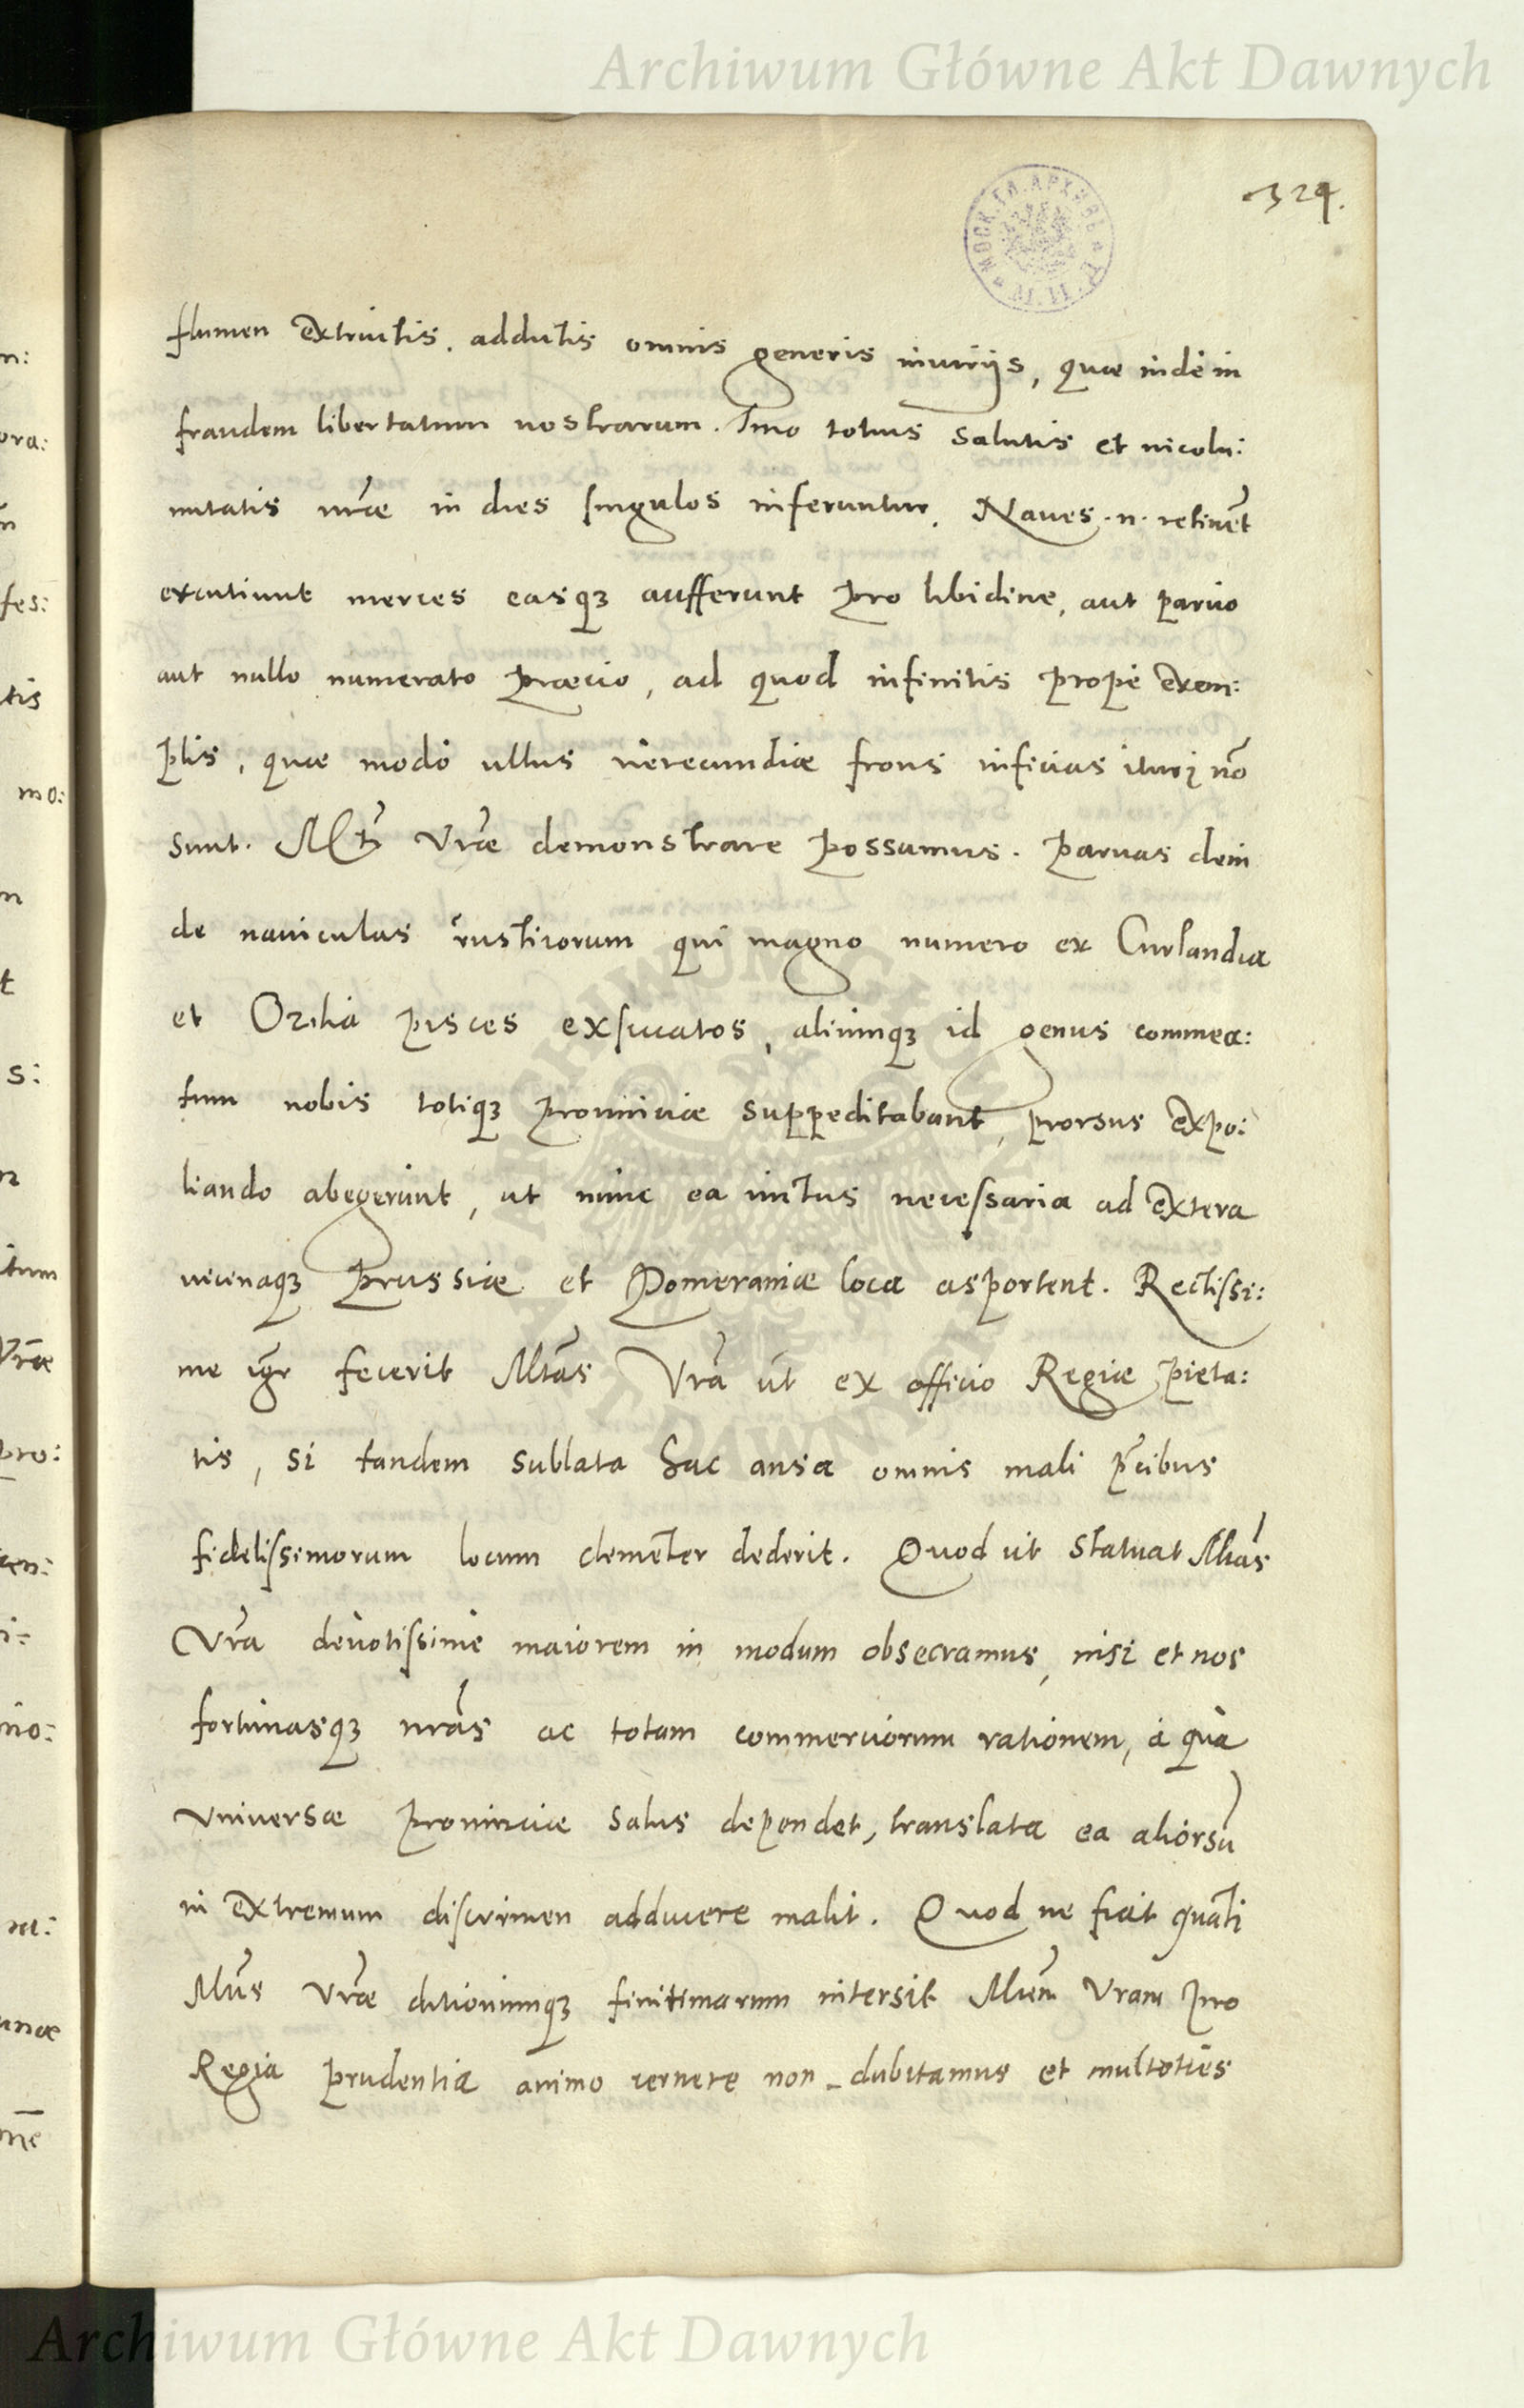 Archiwum Główne Akt Dawnych
324.
flumen extructis. addutis omnis generis iniurijs, quæ indè in
fraudem libertatum nostrarum. Imo totius salutis et incolu:
mitatis nr̃æ in dies singulos inferuntur. Naues .n. retinẽt
excutiunt merces easq₃ aufferunt pro libidine, aut paruo
aut nullo numerato præcio, ad quod infinitis propè exem:
plis, quæ modò ullus verecundiæ frons inficias iturj nõ
sunt. Mtj Vr̃æ demonstrare possumus. Paruas dein
de nauiculas rusticorum qui magno numero ex Curlandia
et Ozilia pisces exsiccatos, aliumq₃ id genus commea:
tum nobis totiq₃ prouinciæ suppeditabant, prorsus expo:
liando abegerunt, ut nunc ea uictus necessaria ad extera
uicinaq₃ Prussiæ et Pomeraniæ loca asportent. Rectissi:
me igr̃ fecerit Mtãs Vr̃a ut ex officio Regiæ pieta:
tis, si tandem sublata hac ansa omnis mali p̃cibus
fidelissimorum locum clemẽter dederit. Quod ut statuat Mtãs
Vr̃a deuotissimè maiorem in modum obsecramus, nisi et nos
fortunasq₃ nr̃as ac totam commerciorum rationem, à qua
Vniuersæ prouinciæ salus dependet, translata ea aliorsũ
in extremum discrimen adducere malit. Quod ne fiat quãti
Mtis Vr̃æ ditionumq₃ finitimarum intersit Mtem Vram pro
Regia prudentia animo cernere non dubitamus et multoties
Archiwum Główne Akt Dawnych